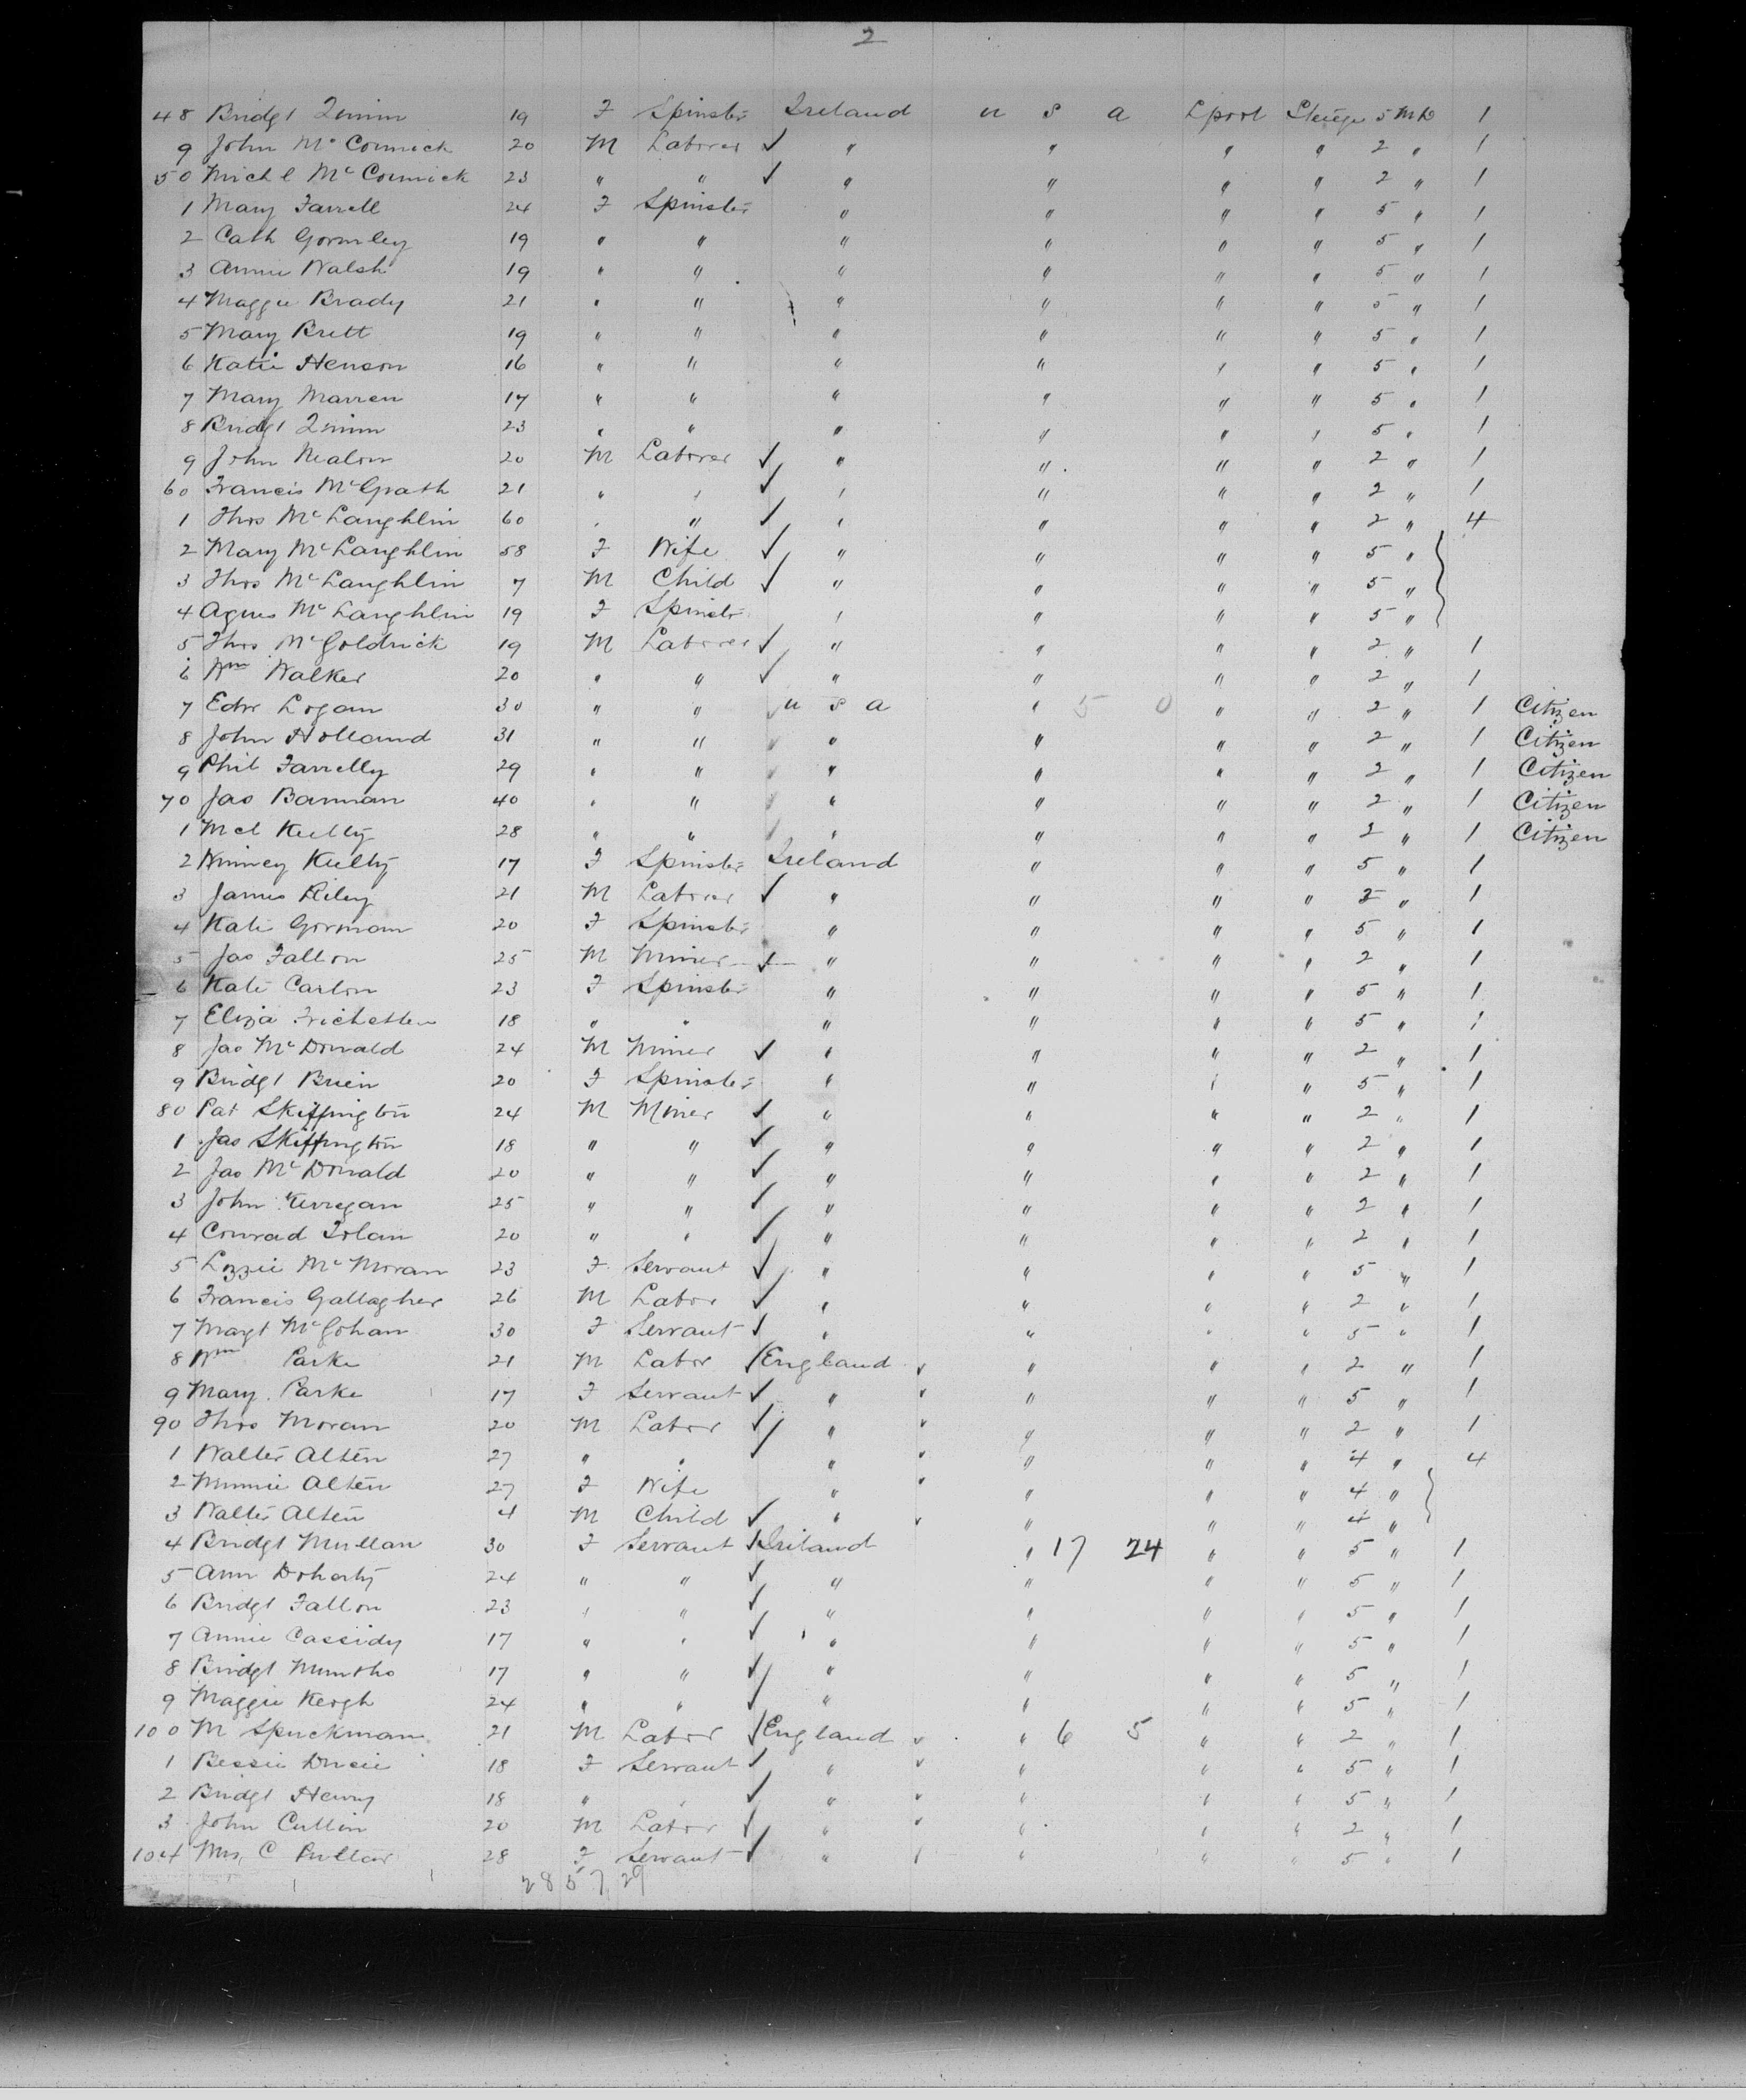 2
48 Bridgt Quinn 19 F Spinster Ireland U S A Lpool Steerage 5 MD 1
9 John McCormick 20 M Laborer ✓ " " " " 2 " 1
50 Michl McCormick 23 " " ✓ " " " " 2 " 1
1 Mary Farrell 24 F Spinster " " " " 5 " 1
2 Cath Gormley 19 " " " " " " 5 " 1
3 Annie Walsh 19 " " " " " " 5 " 1
4 Maggie Brady 21 " " " " " " 5 " 1
5 Mary Brett 19 " " " " " " 5 " 1
6 Katie Henson 16 " " " " " " 5 " 1
7 Mary Marren 17 " " " " " " 5 " 1
8 Bridgt Quinn 23 " " " " " " 5 " 1
9 John Nealon 20 M Laborer ✓ " " " " 2 " 1
60 Francis McGrath 21 " " ✓ " " " " 2 " 1
1 Thos McLaughlin 60 " " ✓ " " " " 2 " 4
2 Mary McLaughlin 58 F Wife ✓ " " " " 5 "
3 Thos McLaughlin 7 M Child ✓ " " " " 5 "
4 Agnes McLaughlin 19 F Spinstr " " " " 5 "
5 Thos McGoldrick 19 M Laborer ✓ " " " " 2 " 1
6 Wm Walker 20 " " ✓ " " " " 2 " 1
7 Edw Logan 30 " " ✓ U S A " 5 0 " " 2 " 1 Citizen
8 John Holland 31 " " ✓ " " " " 2 " 1 Citizen
9 Phil Farrelly 29 " " ✓ " " " " 2 " 1 Citizen
70 Jas Bannan 40 " " ✓ " " " " 2 " 1 Citizen
1 Mcl Kielty 28 " " ✓ " " " " 2 " 1 Citizen
2 Winney Kielty 17 F Spinster Ireland " " " 5 " 1
3 James Riley 21 M Laborer ✓ " " " " 2 " 1
4 Kate Gorman 20 F Spinster " " " " 5 " 1
5 Jas Fallon 25 M Miner ✓ " " " " 2 " 1
6 Kate Carlon 23 F Spinster " " " " 5 " 1
7 Eliza 18 " " " " " " 5 " 1
8 Jas McDonald 24 M Miner ✓ " " " " 2 " 1
9 Bridgt Brien 20 F Spinster " " " " 5 " 1
80 Pat Skiffington 24 M Miner ✓ " " " " 2 " 1
1 Jas Skiffington 18 " " ✓ " " " " 2 " 1
2 Jas McDonald 20 " " ✓ " " " " 2 " 1
3 John Kerregan 25 " " ✓ " " " " 2 " 1
4 Conrad Tolan 20 " " ✓ " " " " 2 " 1
5 Lizzie McMoran 23 F Servant ✓ " " " " 5 " 1
6 Francis Gallagher 26 M Labor ✓ " " " " 2 " 1
7 Margt McGohan 30 F Servant ✓ " " " " 5 " 1
8 Wm Parke 21 M Labor ✓ England " " " 2 " 1
9 Mary Parke 17 F Servant ✓ " " " " 5 " 1
90 Thos Moran 20 M Labor ✓ " " " " 2 " 1
1 Walter Alten 27 " " ✓ " " " " 4 " 4
2 Minnie Alten 27 F Wife " " " " 4 "
3 Walter Alten 4 M Child ✓ " " " " 4 "
4 Bridgt Mullan 30 F Servant ✓ Ireland " 17 24 " " 5 " 1
5 Ann Doherty 24 " " ✓ " " " " 5 " 1
6 Bridgt Fallon 23 " " ✓ " " " " 5 " 1
7 Annie Cassidy 17 " " ✓ " " " " 5 " 1
8 Bridgt 17 " " ✓ " " " " 5 " 1
9 Maggie Keogh 24 " " ✓ " " " " 5 " 1
100 M Spuckman 21 M Labor ✓ England " 6 5 " " 2 " 1
1 Bessie 18 F Servant ✓ " " " " 5 " 1
2 Bridgt Henry 18 " " ✓ " " " " 5 " 1
3 John Cullin 20 M Labor ✓ " " " " 2 " 1
104 Mrs C 28 F Servant ✓ " " " " 5 " 1
28 57 29